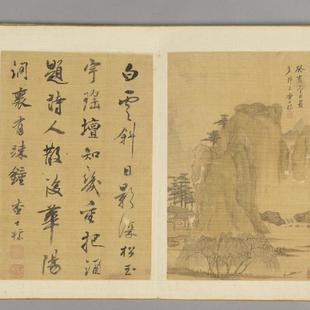 白雲斜日影深松玉
宇瑤壇知幾重把酒
題詩人散後華陽
洞裏有疎鐘 查士標